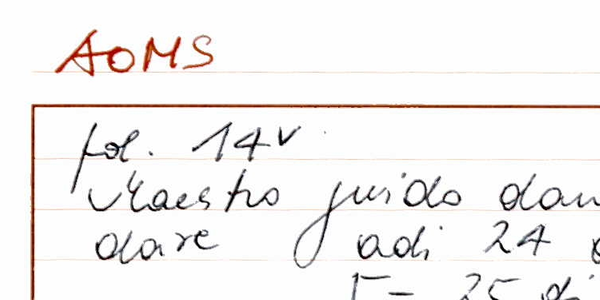 AOMS
fol. 14v
Maestro guido
dare adi 24
25 di